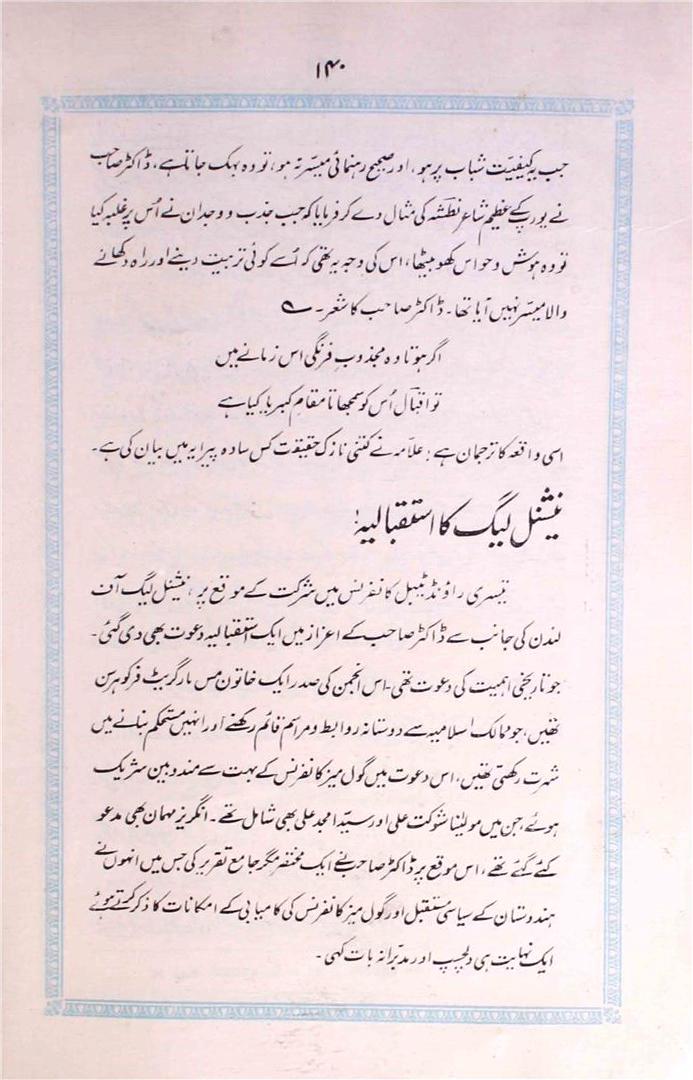 ۱۴۰
جب یہ کیفیّت شباب پر ہو، اور صحیح رہنمائی میسّر نہ ہو، تو وہ بہک جاتا ہے، ڈاکٹر صاحب
نے یورپ کے عظیم شاعر نطشہ کی مثال دے کر فرمایا کہ جب جذب و وجدان نے اُس پر غلبہ کیا
تو وہ ہوش و حواس کھو بیٹھا، اس کی وجہ یہ تھی کہ اُسے کوئی تربیت دینے اور راہ دکھانے
والا میسّر نہیں آیا تھا۔ ڈاکٹر صاحب کا شعر۔ ؎
اگر ہوتا وہ مجذوبِ فرنگی اس زمانے میں
تو اقبالؔ اُس کو سمجھاتا مقامِ کبریا کیا ہے
اسی واقعہ کا ترجمان ہے: علّامہ نے کتنی نازک حقیقت کس سادہ پیرایہ میں بیان کی ہے۔
نیشنل لیگ کا استقبالیہ!
تیسری راؤنڈ ٹیبل کانفرنس میں شرکت کے موقع پر، نیشنل لیگ آف
لندن کی جانب سے ڈاکٹر صاحب کے اعزاز میں ایک استقبالیہ دعوت بھی دی گئی۔
جو تاریخی اہمیت کی دعوت تھی۔ اس انجمن کی صدر ایک خاتون مس مارگریٹ فرکوہرسن
تھیں، جو ممالک اسلامیہ سے دوستانہ روابط و مراسم قائم رکھنے اور انہیں مستحکم بنانے میں
شہرت رکھتی تھیں، اس دعوت میں گول میز کانفرنس کے بہت سے مندوبین شریک
ہوئے، جن میں مولینا شوکت علی اور سیّد امجد علی بھی شامل تھے۔ انگریز مہمان بھی مدعو
کئے گئے تھے، اس موقع پر ڈاکٹر صاحب نے ایک مختصر مگر جامع تقریر کی جس میں انہوں نے
ہندوستان کے سیاسی مستقبل اور گول میز کانفرنس کی کامیابی کے امکانات کا ذکر کرتے ہوئے
ایک نہایت ہی دلچسپ اور مدبّرانہ بات کہی۔